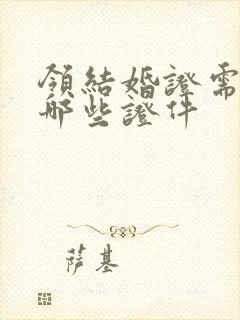 領結婚證需
哪些證件
薩基